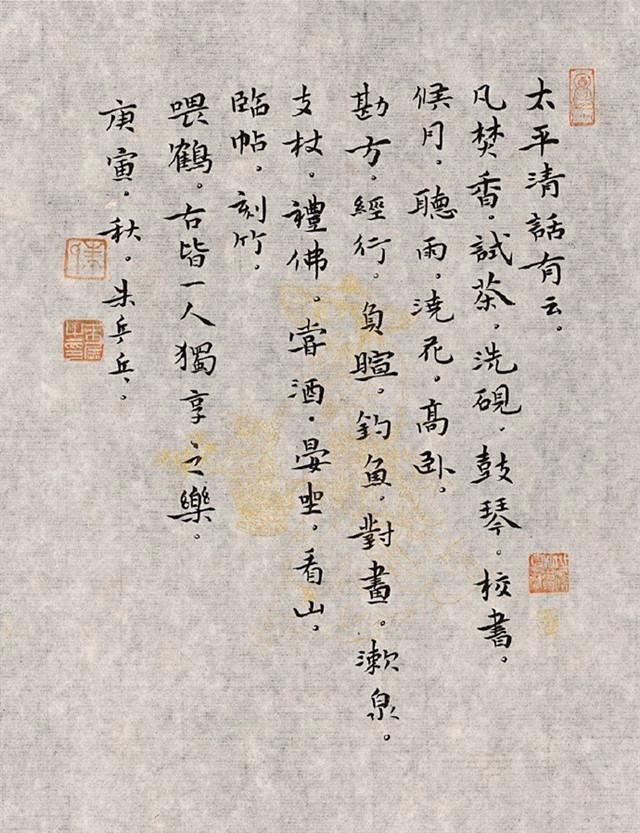 太平清話有云。
凡焚香。試茶。洗硯。鼓琴。校書。
候月。聽雨。澆花。高卧。
勘方。經行。負暄。釣魚。對畫。漱泉。
支杖。禮佛。嘗酒。晏坐。看山。
臨帖。刻竹。
喂鶴。右皆一人獨享之樂。
庚寅。秋。朱乒乓。